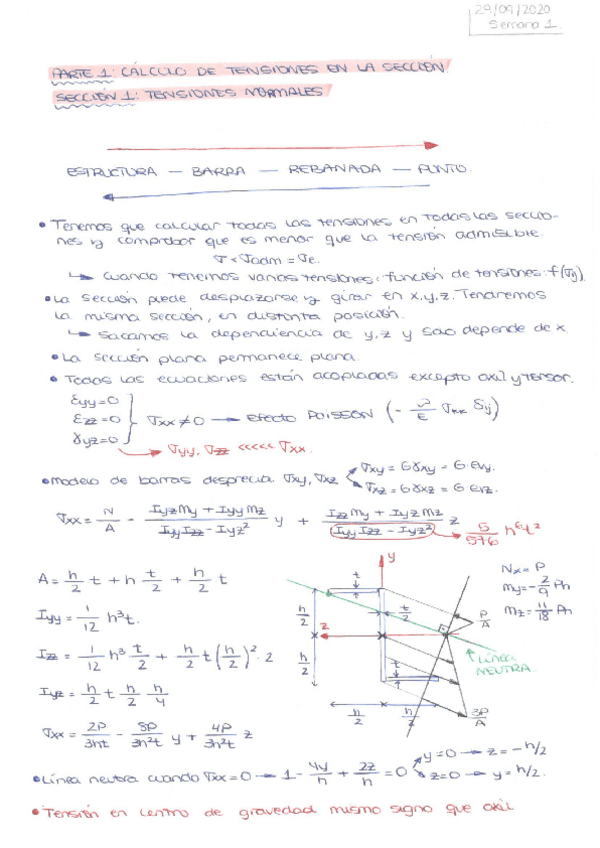 29/09/2020
Semana 1
PARTE 1: CÁLCULO DE TENSIONES EN LA SECCIÓN
SECCIÓN 1: TENSIONES NORMALES
ESTRUCTURA — BARRA — REBANADA — PUNTO.
• Tenemos que calcular todas las tensiones en todas las seccio-
nes y comprobar que es menor que la tensión admisible.
σ < σadm = σe.
↳ Cuando tenemos varias tensiones: función de tensiones: f(σij).
• La sección puede desplazarse y girar en x,y,z. Tendremos
la misma sección, en distinta posición.
↳ Sacamos la dependiencia de y,z y solo depende de x.
• La sección plana permanece plana.
• Todas las ecuaciones están acopladas excepto axil y torsor.
εyy=0
εzz=0
γyz=0
σxx≠0 → Efecto POISSON (- ν/E σxx δij)
→ σyy, σzz <<<<< σxx.
• Modelo de barras desprecia σxy, σxz
σxy = Gγxy = G·evy.
σxz = Gγxz = G·evz.
σxx = N/A - (IyzMy + IyyMz)/(IyyIzz - Iyz²) y + (IzzMy + IyzMz)/(IyyIzz - Iyz²) z
→ 5/576 h⁶t²
A = h/2 t + h t/2 + h/2 t
Iyy = 1/12 h³t.
Izz = 1/12 h³ t/2 + h/2 t (h/2)² · 2
Iyz = h/2 t h/2 h/4
σxx = 2P/3ht - 8P/3h²t y + 4P/3h²t z
y
t
h/2
t/2
z
h/2
t
h/2
h/2
P/A
3P/A
LÍNEA
NEUTRA.
Nx = P
My = -2/9 Ph
Mz = 11/18 Ph
• Línea neutra cuando σxx=0 → 1 - 4y/h + 2z/h = 0
y=0 → z = -h/2
z=0 → y = h/2.
• Tensión en centro de gravedad mismo signo que axil